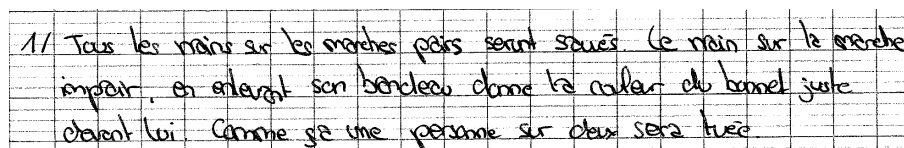 1/ Tous les nains sur les marches pairs seront sauvés. Le nain sur la marche
impair, en enlevant son bandeau donne la couleur du bonnet juste
devant lui. Comme ça une personne sur deux sera tuée.